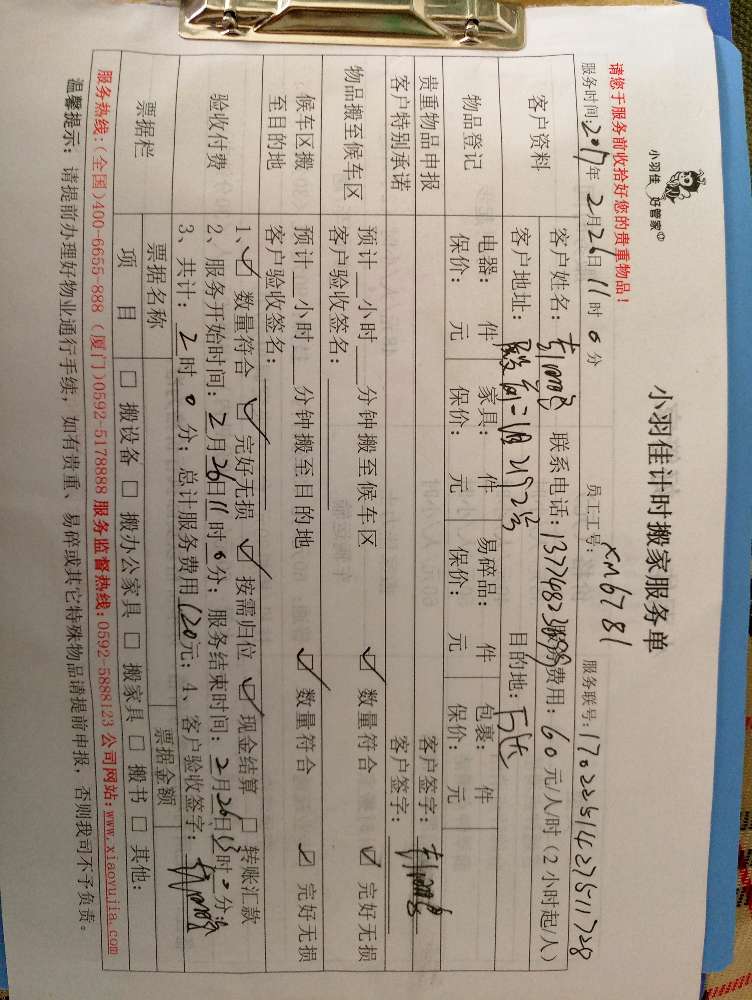 小羽佳 好管家
小羽佳计时搬家服务单
请您于服务前收拾好您的贵重物品！
服务时间：2017年2月26日11时0分 员工工号：XM6781 服务联号：
客户资料 客户姓名： 联系电话： 服务费用：60元/人/时（2小时起/人）
客户地址： 目的地：
物品登记 电器： 件 家具： 件 易碎品： 件 包裹： 件
保价： 元 保价： 元 保价： 元 保价： 元
贵重物品申报 客户签字：
客户特别承诺 客户签字：
物品搬至候车区 预计 小时 分钟搬至候车区 ☑ 数量符合 ☑ 完好无损
客户验收签名：
候车区搬至目的地 预计 小时 分钟搬至目的地 ☑ 数量符合 ☑ 完好无损
客户验收签名：
验收付费 1、☑ 数量符合 ☑ 完好无损 ☑ 按需归位 ☑ 现金结算 □ 转账汇款
2、服务开始时间：2月26日11时0分；服务结束时间：2月26日13时0分；
3、共计：2时0分；总计服务费用120元；4、客户验收签字：
票据栏 票据名称 票据金额
项 目 □ 搬设备 □ 搬办公家具 □ 搬家具 □ 搬书 □ 其他：
服务热线：（全国）400-6655-888（厦门）0592-5178888 服务监督热线：0592-5888123 公司网站：www.xiaoyujia.com
温馨提示：请提前办理好物业通行手续，如有贵重、易碎或其它特殊物品请提前申报，否则我司不予负责。